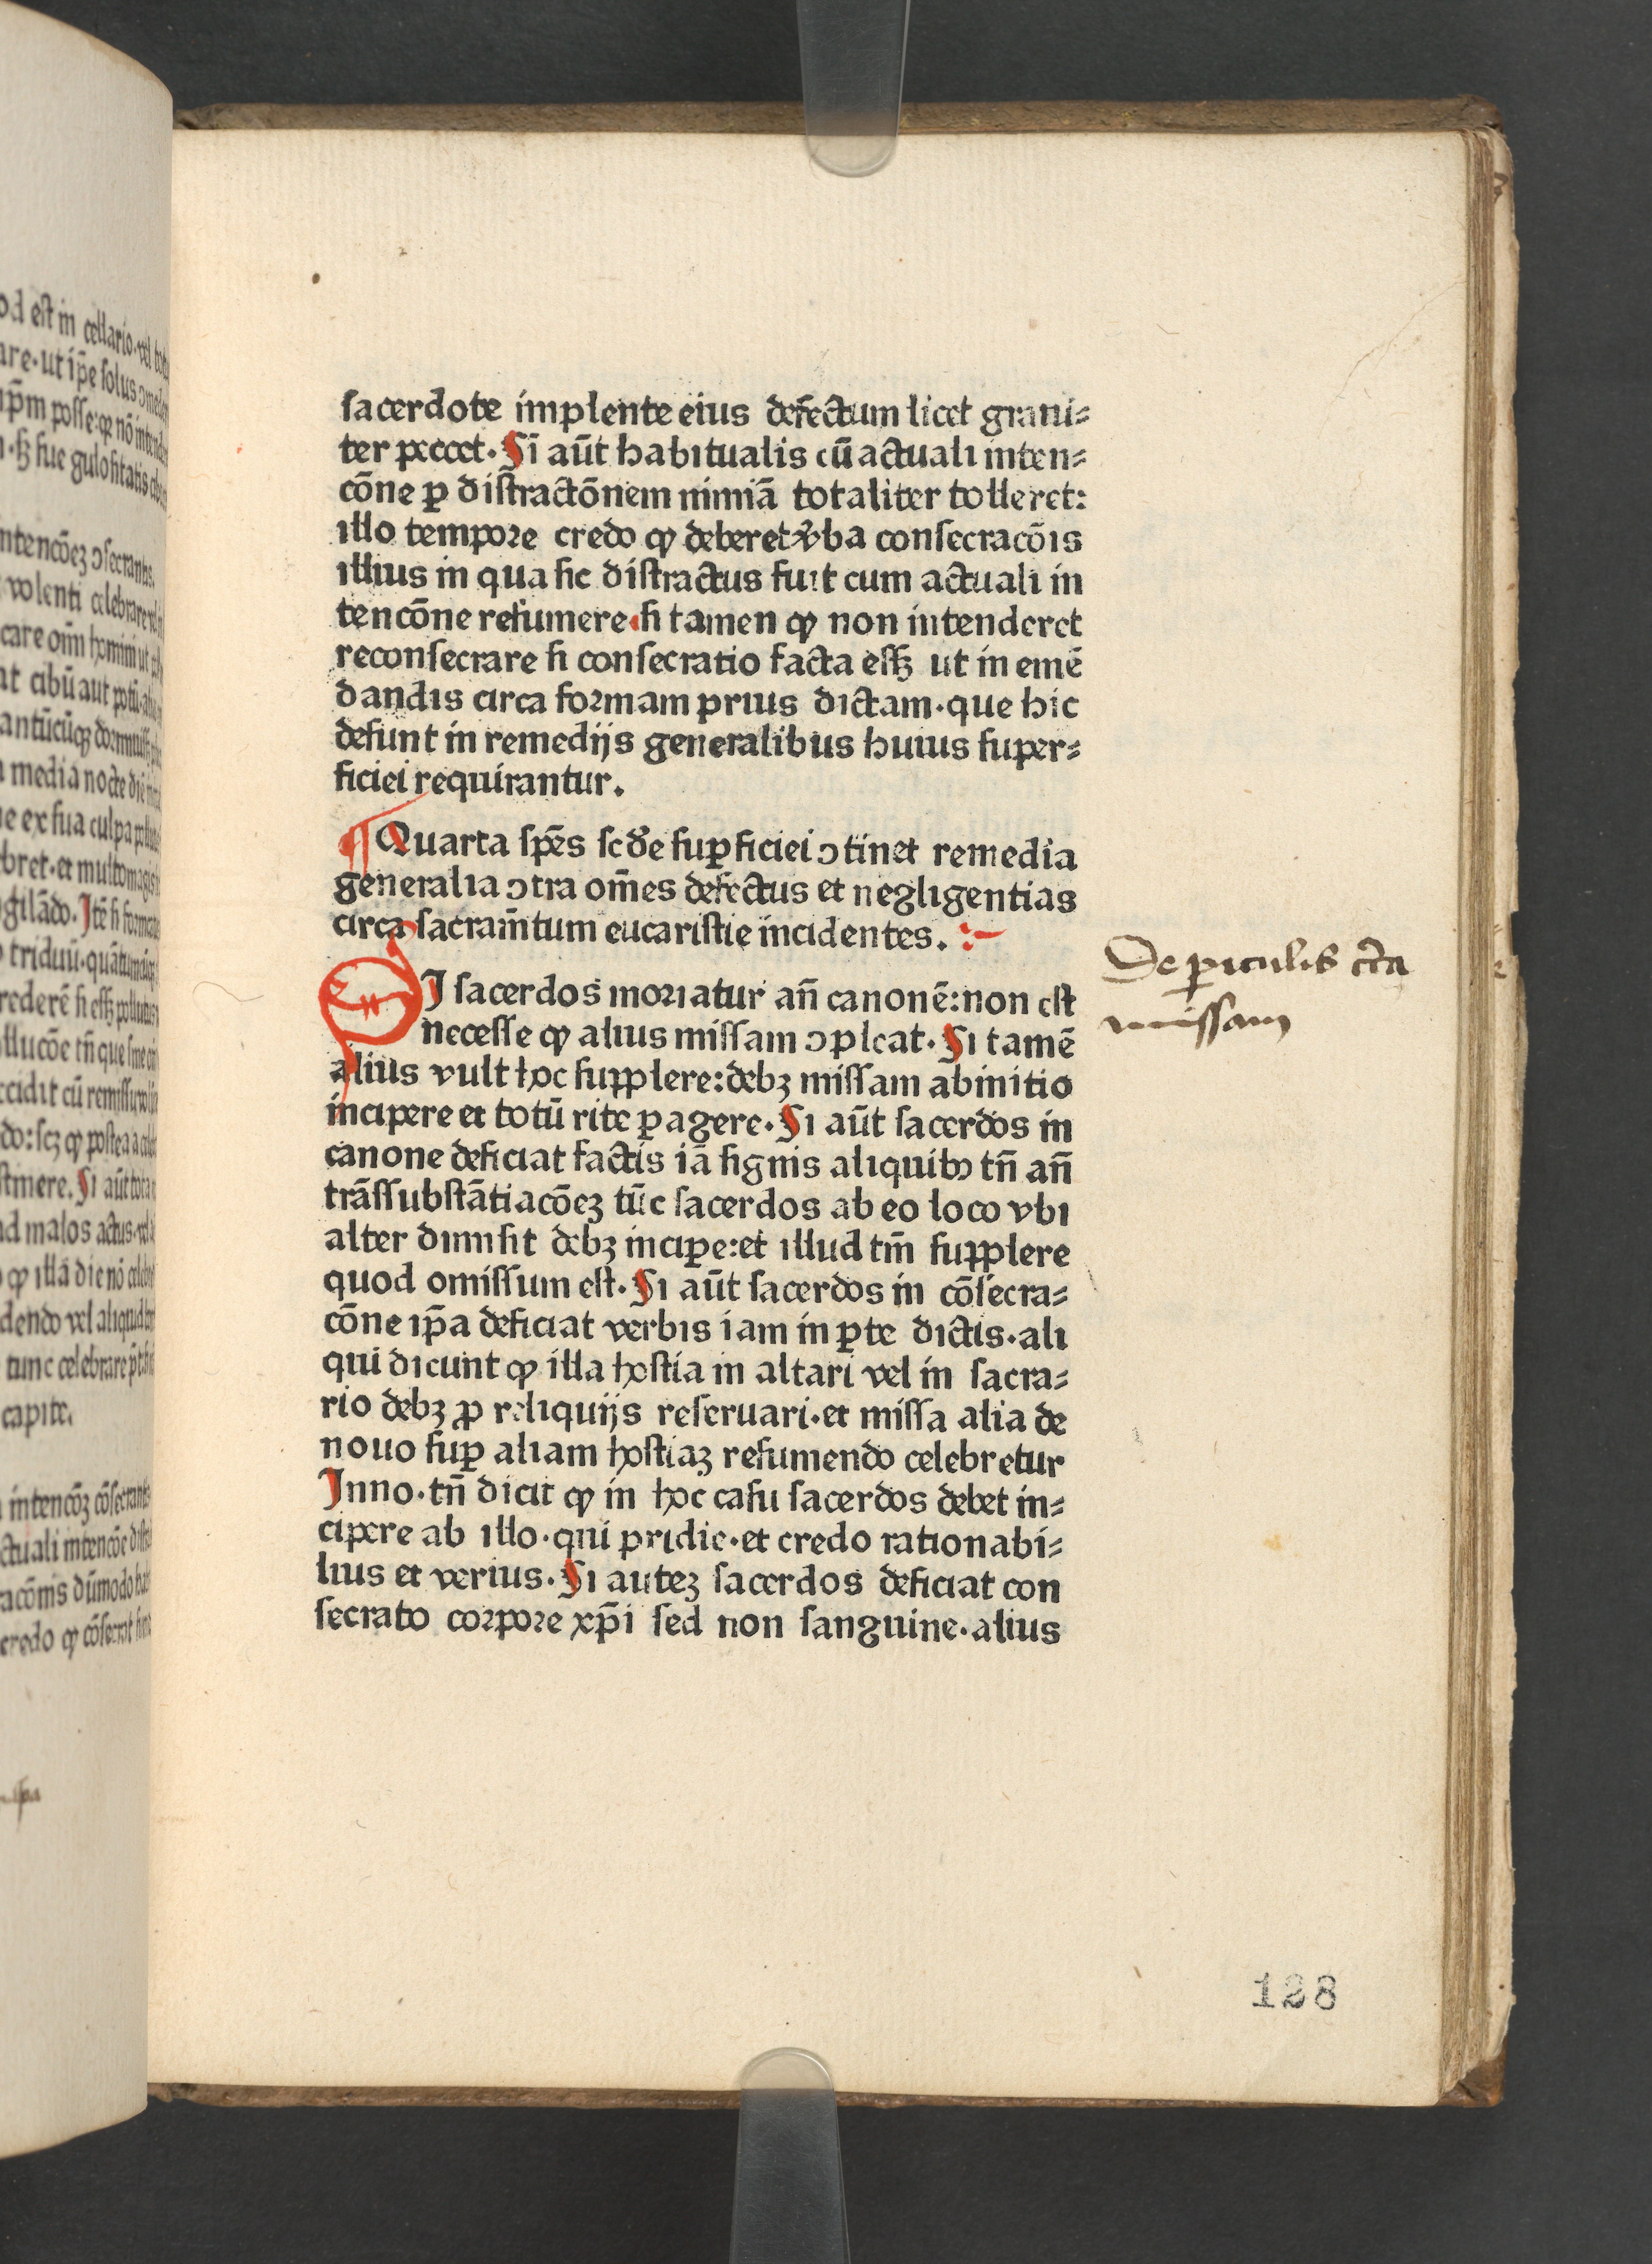 sacerdote implente eius defectum licet graui⸗
ter peccet. Si aūt habitualis cū actuali inten⸗
cōne ꝑ distractōnem nimiā totaliter tolleret:
illo tempore credo ꝙ deberet v̄ba consecracōis
illius in qua sic distractus fuit cum actuali in
tencōne resumere·si tamen ꝙ non intenderet
reconsecrare si consecratio facta essꝫ ut in emē
dandis circa formam prius dictam·que hic
desunt in remedijs generalibus huius super⸗
ficiei requirantur.
¶Quarta spēs scd̄e suꝑficiei ↄtinet remedia
generalia ↄtra om̄es defectus et negligentias
circa sacram̄tum eucaristie incidentes.
SI sacerdos moriatur an̄ canonē:non est
necesse ꝙ alius missam ↄpleat. Si tamē
alius vult hoc supplere:debꝫ missam abinitio
incipere et totū rite ꝑagere. Si aūt sacerdos in
canone deficiat factis iā signis aliquibꝰ tn̄ an̄
trāssubstātiacōeꝫ tūc sacerdos ab eo loco vbi
alter dimisit debꝫ inciꝑe:et illud tm̄ supplere
quod omissum est. Si aūt sacerdos in cōsecra⸗
cōne ip̄a deficiat verbis iam in ꝑte dictis·ali
qui dicunt ꝙ illa hostia in altari vel in sacra⸗
rio debꝫ ꝓ reliquijs reseruari·et missa alia de
nouo suꝑ aliam hostiaꝫ resumendo celebretur
Inno·tn̄ dicit ꝙ in hoc casu sacerdos debet in⸗
cipere ab illo·qui pridie·et credo rationabi⸗
lius et verius. Si auteꝫ sacerdos deficiat con
secrato corpore xp̄i sed non sanguine·alius
De ꝑiculis cc̄a
missam
128